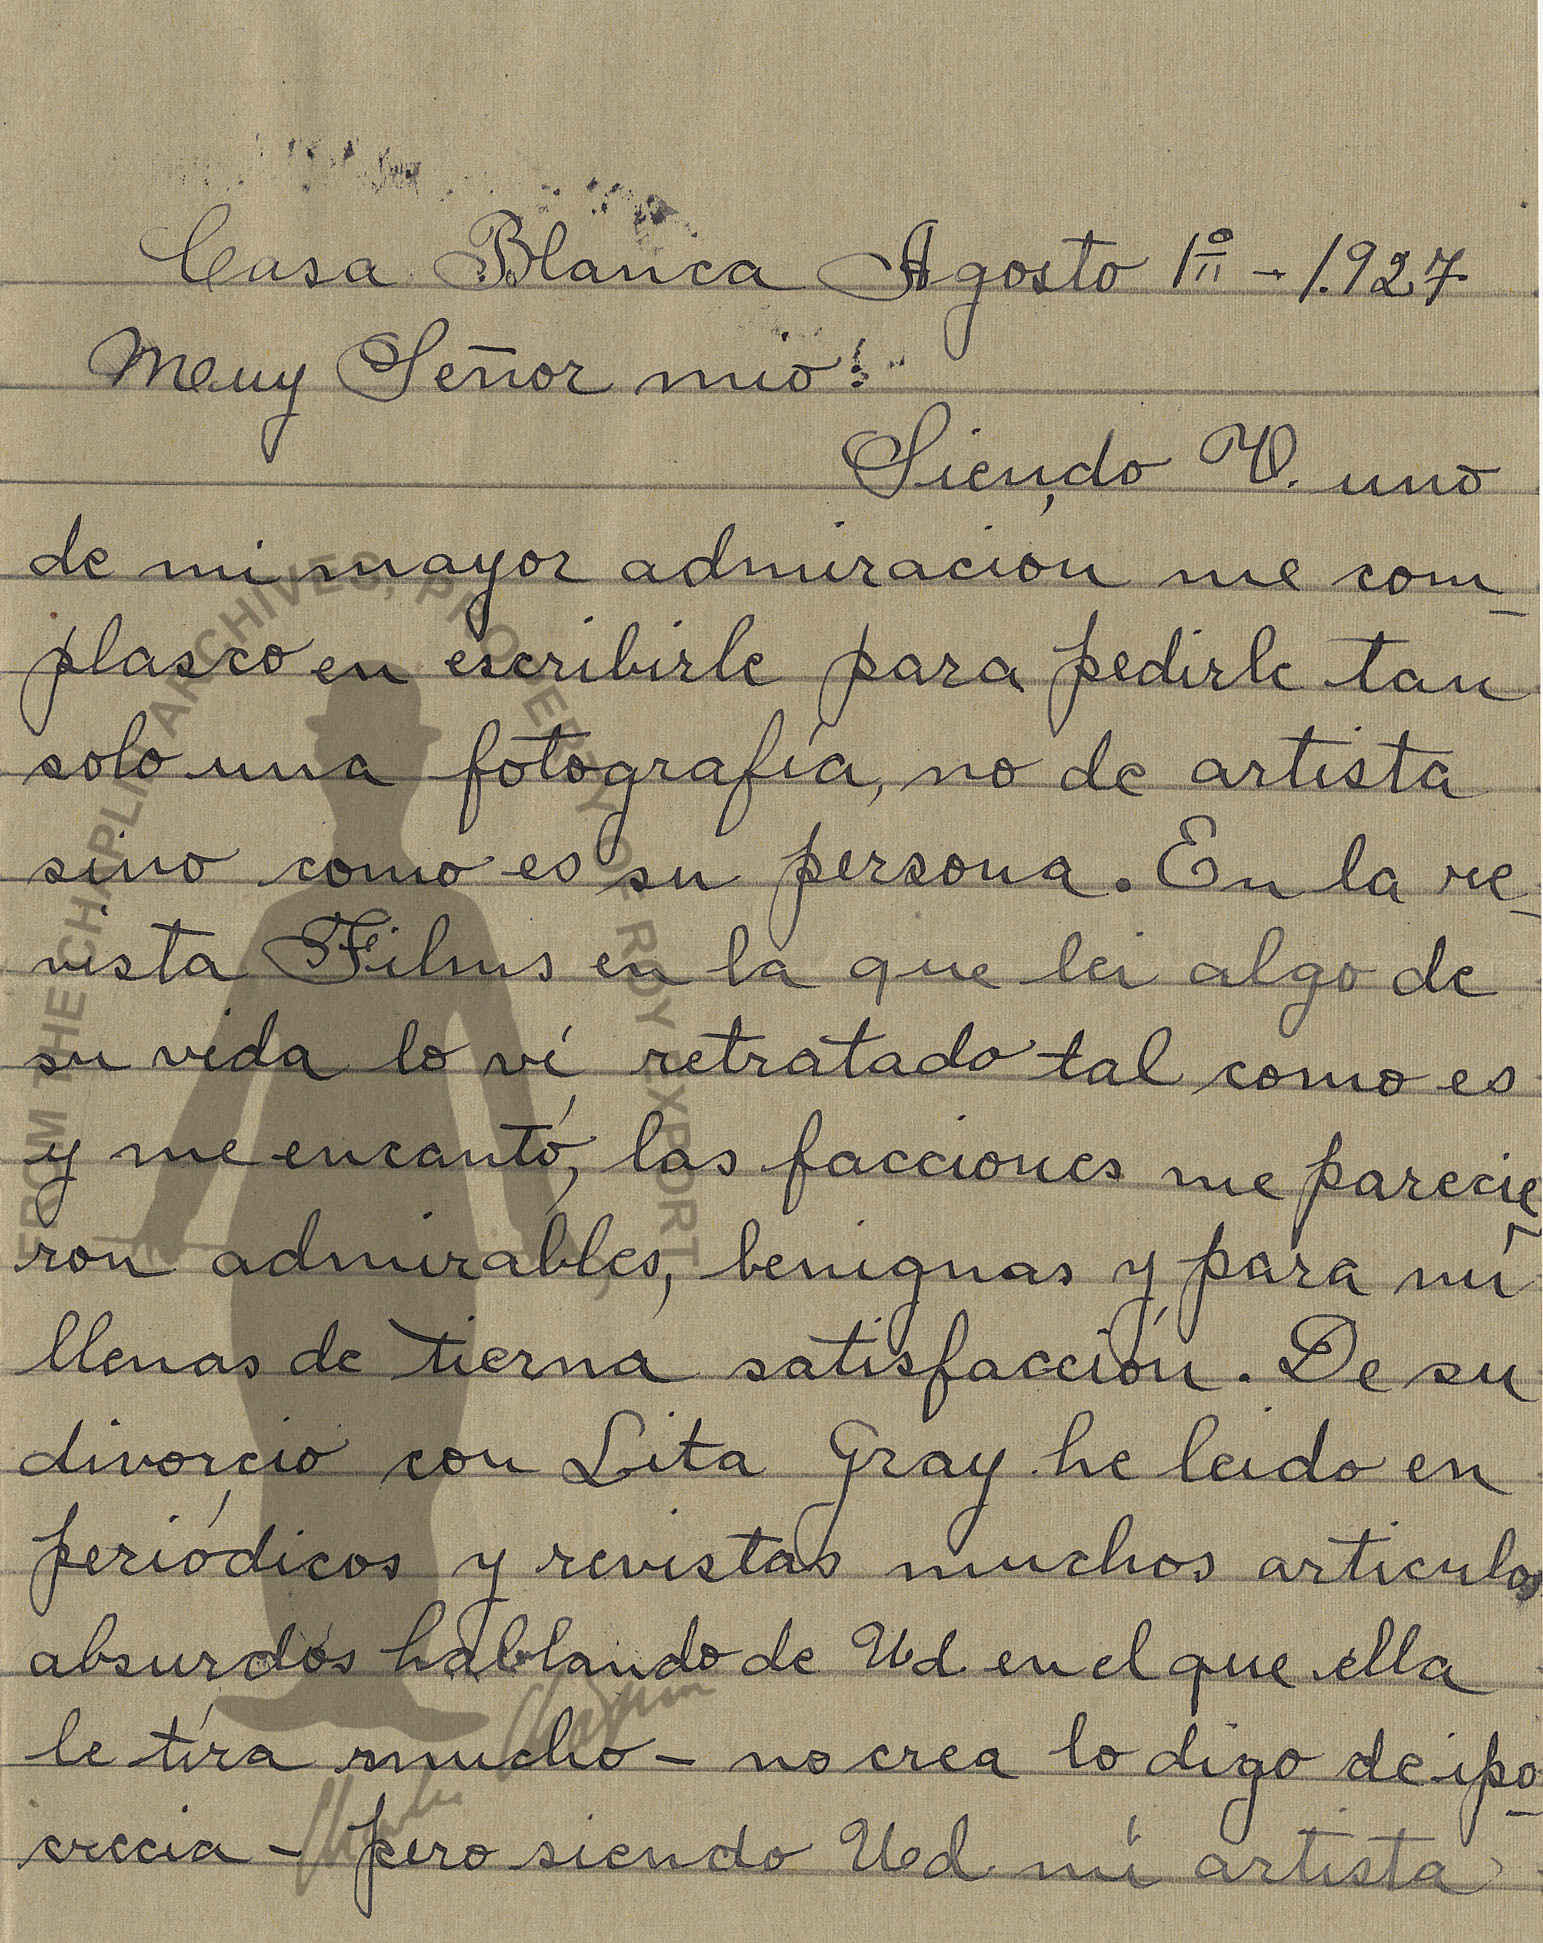 Casa Blanca Agosto 1º - 1.927
Muy Señor mio:
Siendo V. uno
de mi mayor admiración me com_
plasco en escribirle para pedirle tan
solo una fotografía, no de artista
sino como es su persona. En la re_
vista Films en la que lei algo de
su vida lo ví retratado tal como es
y me encantó, las facciones me parecie_
ron admirables, benignas y para mí
llenas de tierna satisfacción. De su
divorcio con Lita Gray he leido en
periódicos y revistas muchos articulos
absurdos hablando de Ud en el que ella
le tira mucho - no crea lo digo de ipo_
crecia - pero siendo Ud. mi artista
FROM THE CHAPLIN ARCHIVES, PROPERTY OF ROY EXPORT
Charlie Chaplin